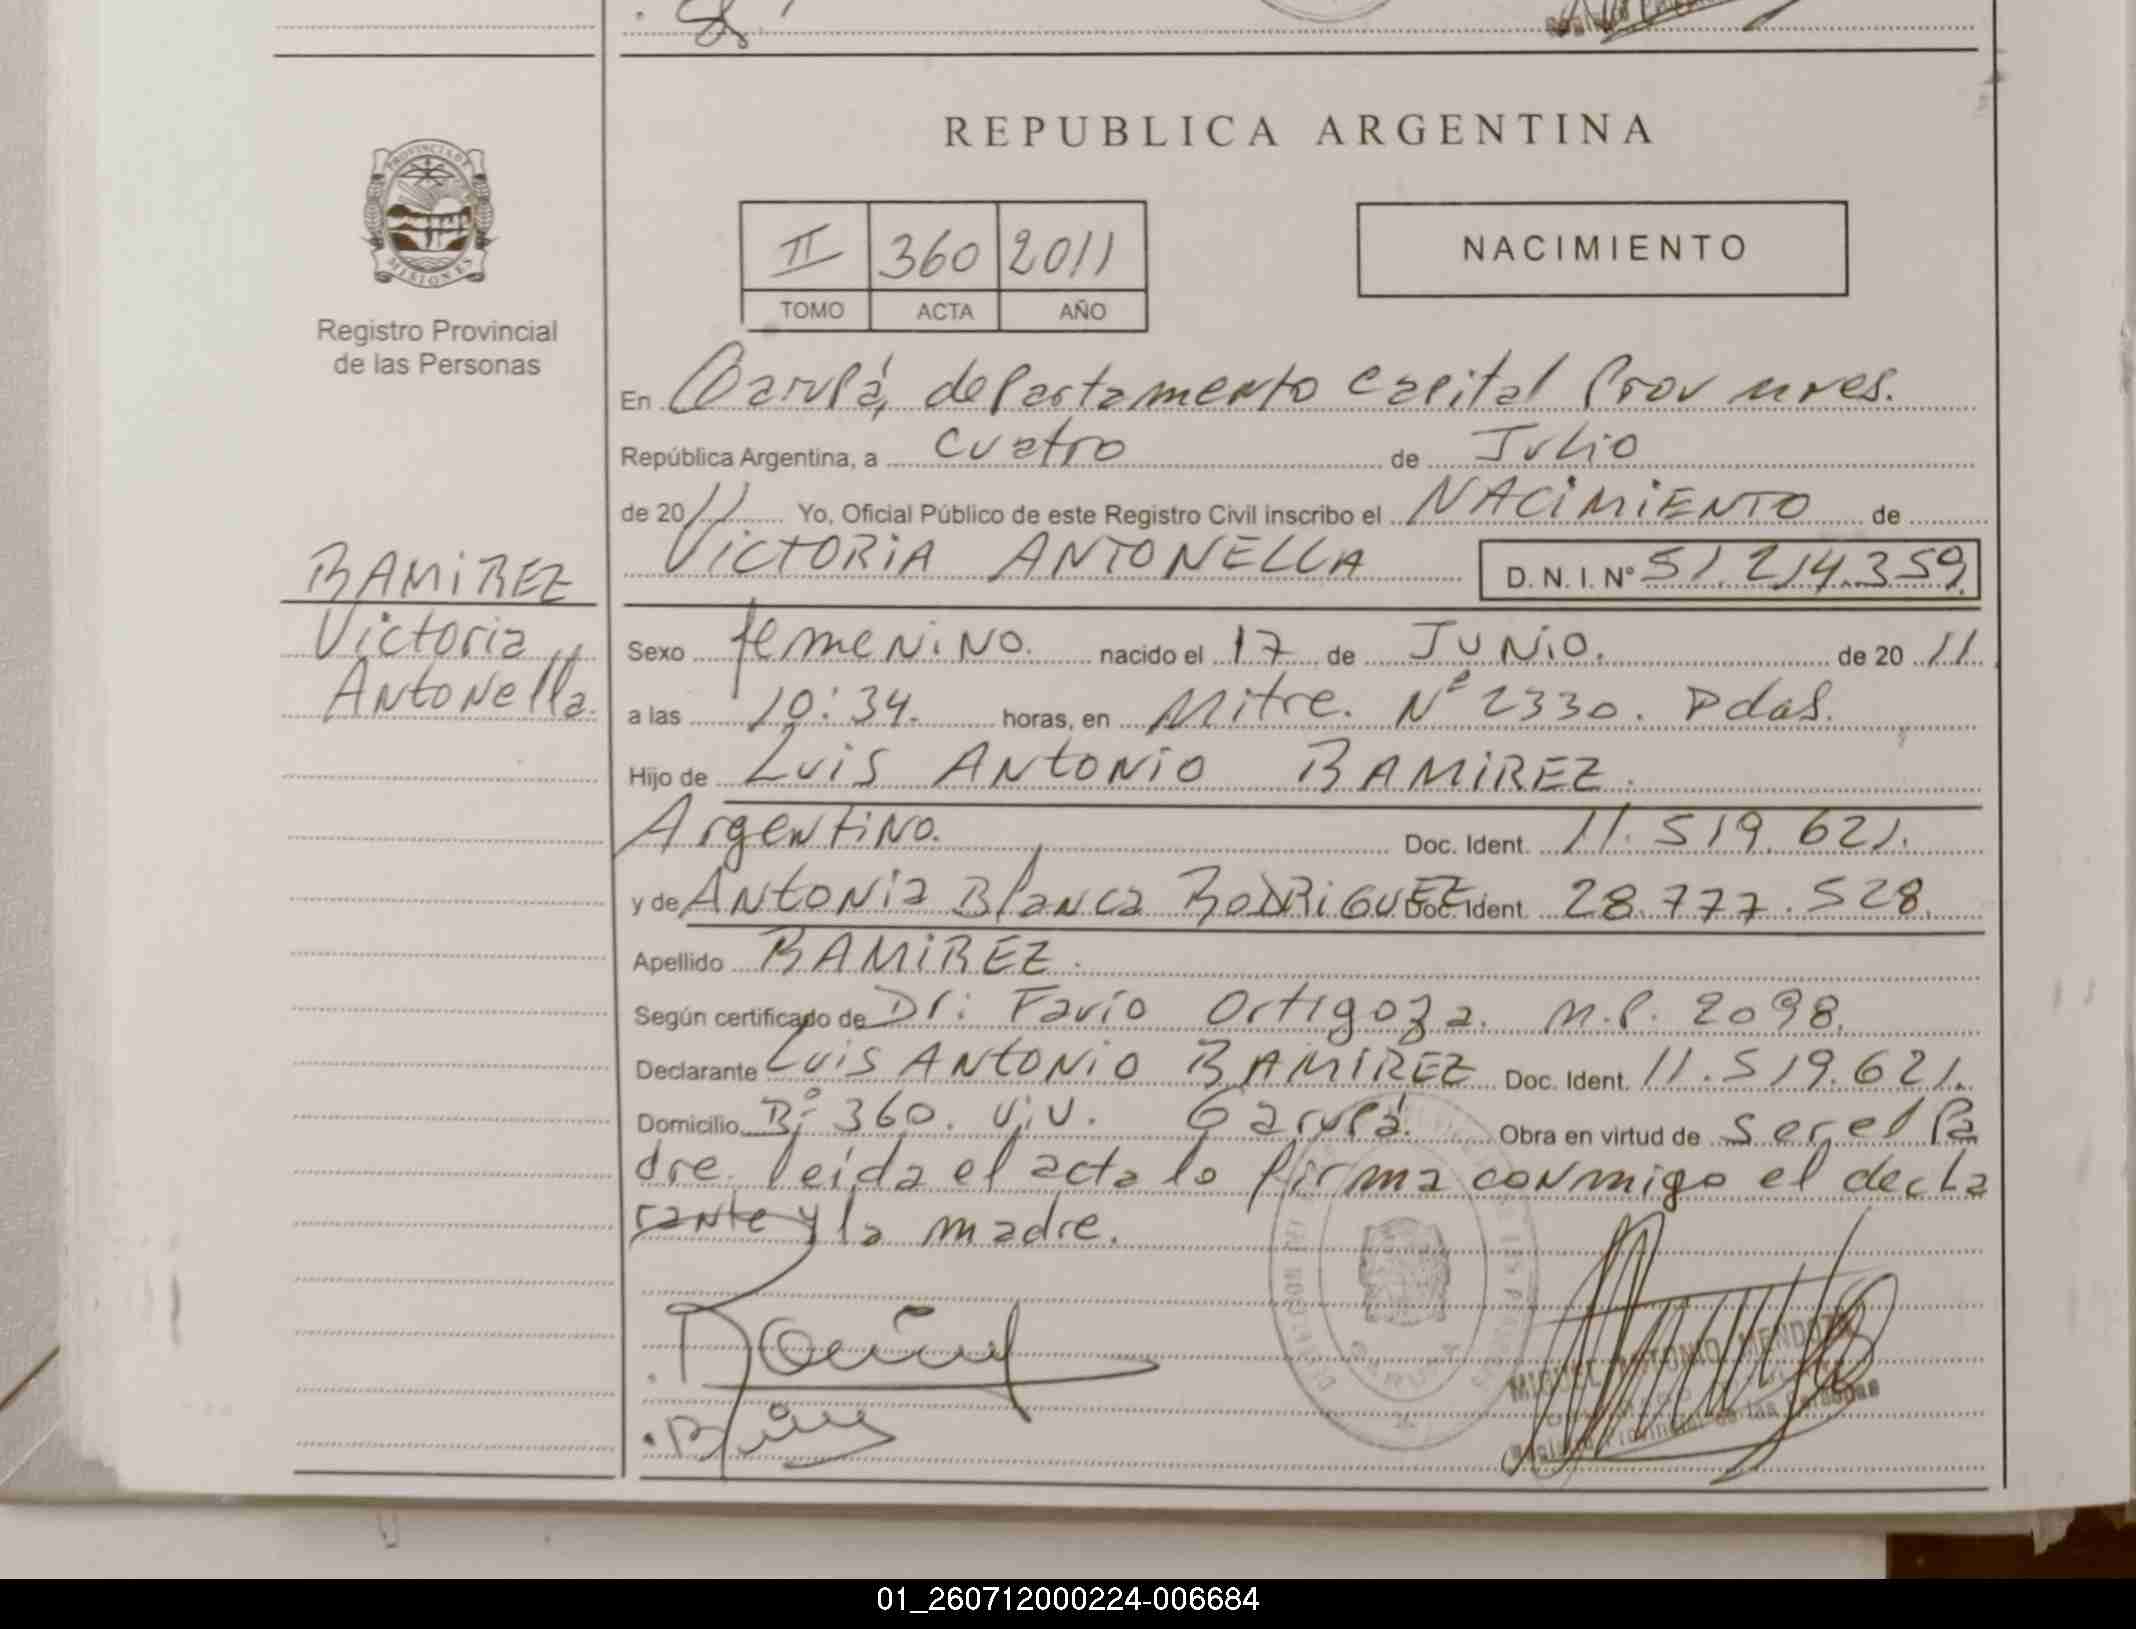 REPUBLICA ARGENTINA
PROVINCIA DE
MISIONES
Registro Provincial
de las Personas
II 360 2011
TOMO ACTA AÑO
NACIMIENTO
En Garupá, departamento Capital Prov Mnes.
República Argentina, a cuatro de Julio
de 2011 Yo, Oficial Público de este Registro Civil inscribo el NACIMIENTO de
VICTORIA ANTONELLA D. N. I. Nº 51.214.359
RAMIREZ
Victoria
Antonella.
Sexo femenino. nacido el 17 de JUNIO. de 2011.
a las 10:34. horas, en Mitre. Nº 2330. Pdas.
Hijo de Luis Antonio RAMIREZ.
Argentino. Doc. Ident. 11.519.621.
y de Antonia Blanca RODRIGUEZ Doc. Ident. 28.777.528.
Apellido RAMIREZ.
Según certificado de Dr: Favio Ortigoza. M.P. 2098.
Declarante Luis Antonio RAMIREZ Doc. Ident. 11.519.621.
Domicilio Bº 360. viv. Garupá. Obra en virtud de ser el Pa
dre. leida el acta lo firma conmigo el decla
rante y la madre.
MIGUEL ANTONIO MENDOZA
Registro Provincial de las Personas
01_260712000224-006684